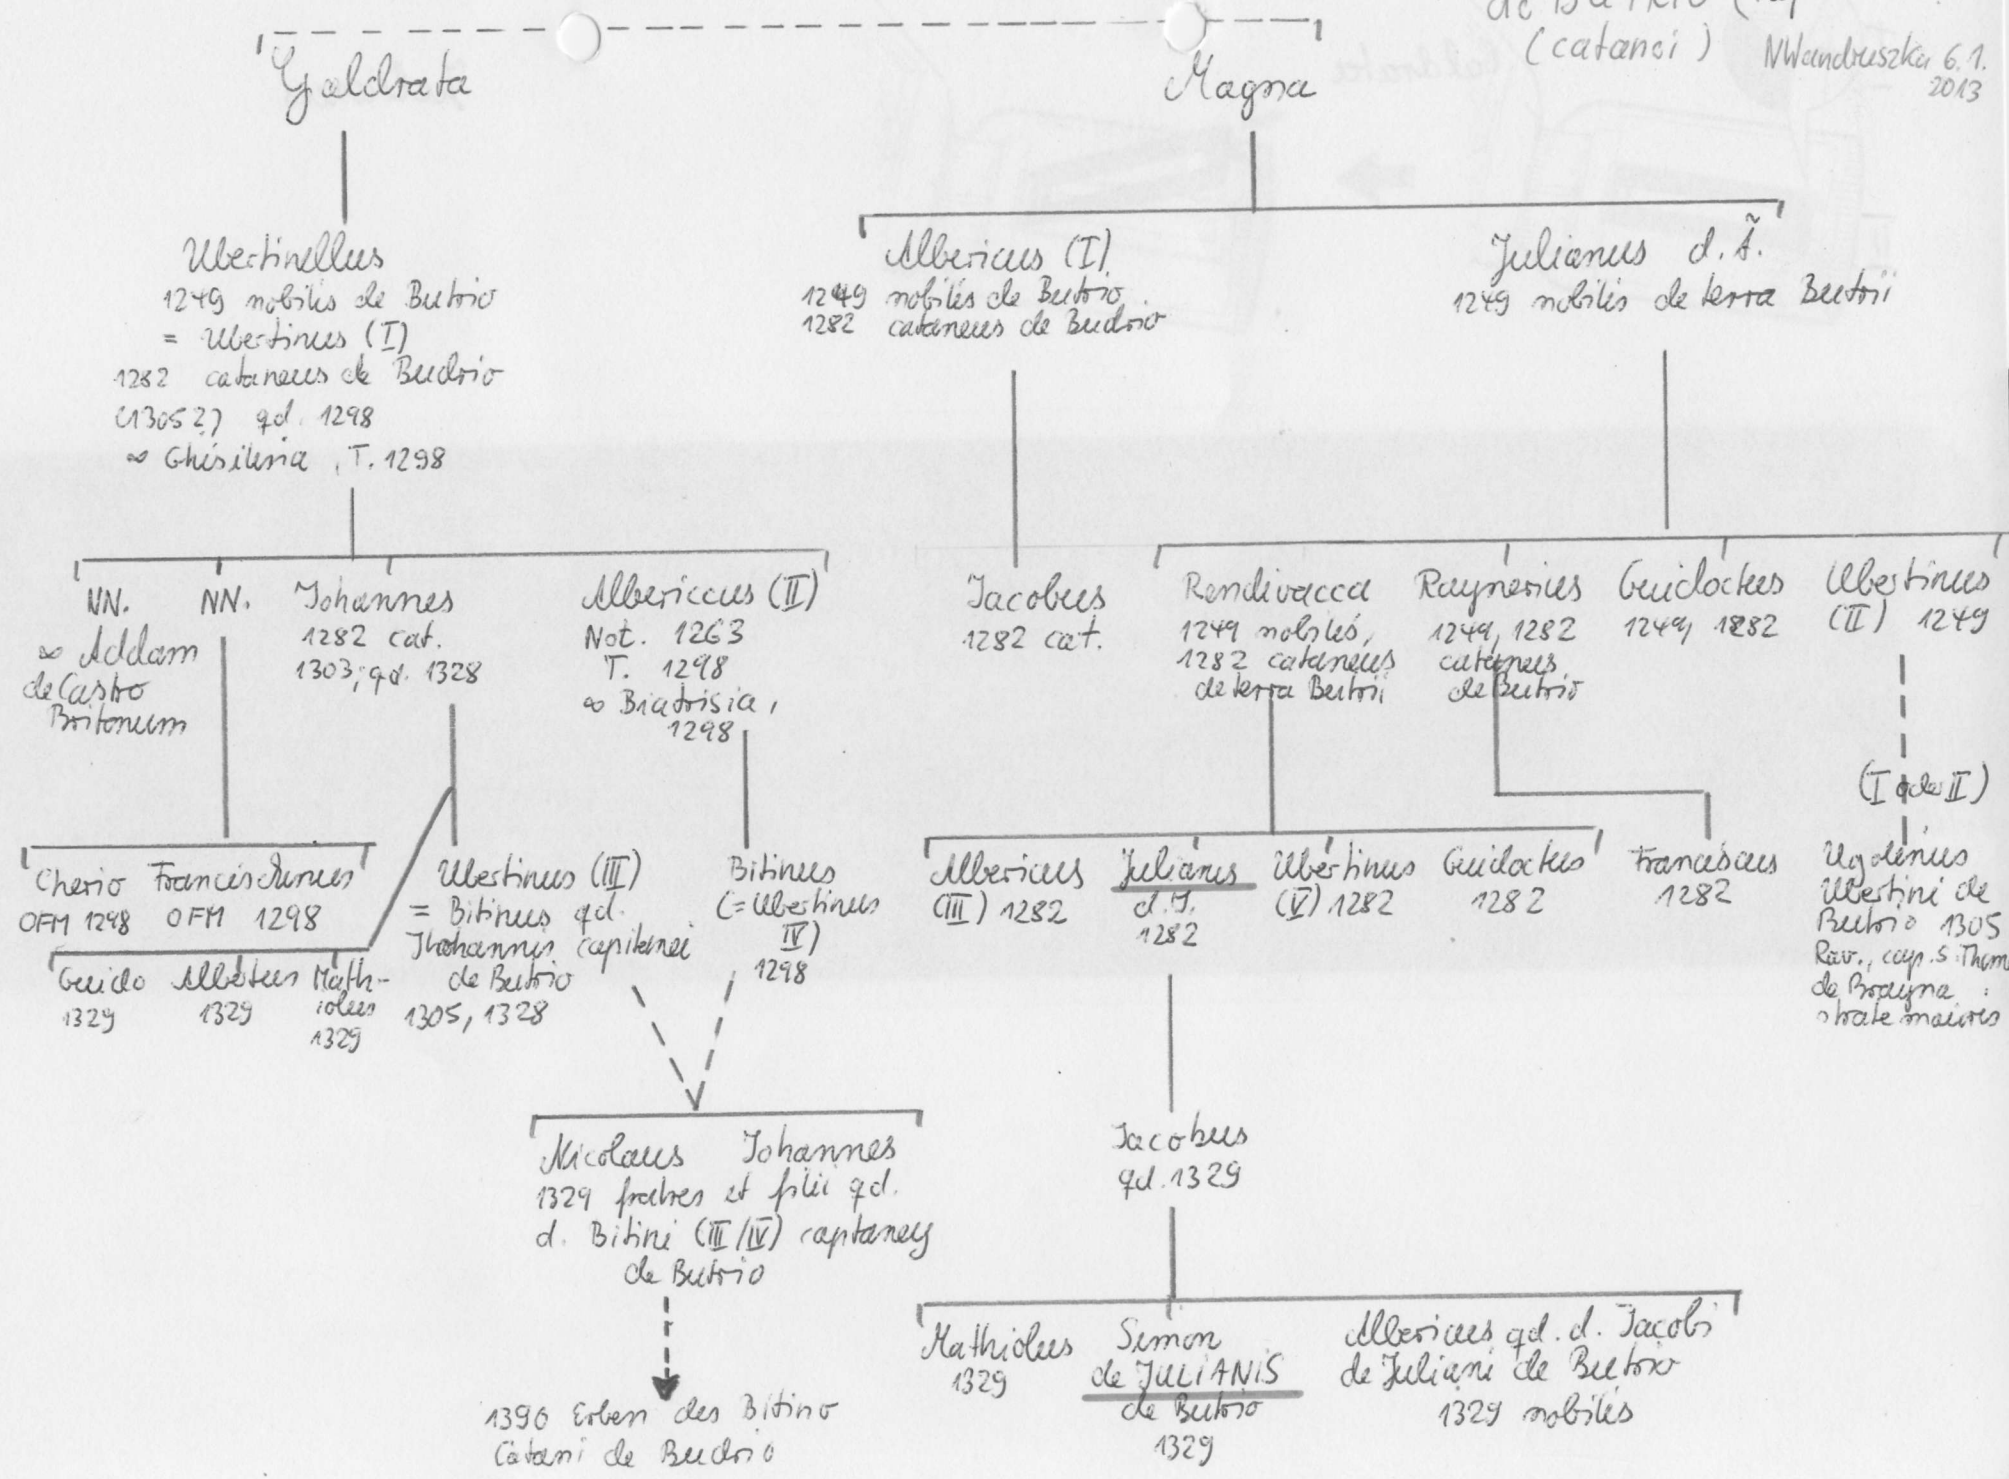 de Butrio
(catanei)
NWandruszka 6.1.
2013
Galdrata
Magna
Ubertinellus
1249 nobilis de Butrio
= Ubertinus (I)
1282 cataneus de Budrio
(1305?) qd. 1298
∞ Ghisileria, T. 1298
Albericus (I)
1249 nobilis de Butrio
1282 cataneus de Budrio
Julianus d. Ä.
1249 nobilis de terra Butrii
NN.
∞ Addam
de Castro
Britonum
NN.
Johannes
1282 cat.
1303; qd. 1328
Albericcus (II)
Not. 1263
T. 1298
∞ Biatrisia,
1298
Jacobus
1282 cat.
Rendivacca
1249 nobilis,
1282 cataneus
de terra Butrii
Raynerius
1249, 1282
cataneus
de Butrio
Guidoctus
1249, 1282
Ubertinus
(II) 1249
(I oder II)
Cherio
OFM 1298
Francischinus
OFM 1298
Guido
1329
Albertus
1329
Math-
iolus
1329
Ubertinus (III)
= Bitinus qd.
Johannis capitanei
de Butrio
1305, 1328
Bitinus
(= Ubertinus
IV)
1298
Albericus
(III) 1282
Julianus
d. J.
1282
Ubertinus
(V) 1282
Guidoctus
1282
Franciscus
1282
Ugolinus
Ubertini de
Butrio 1305
Rav., cap. S. Thom
de Brayna
strate maioris
Nicolaus Johannes
1329 fratres et filii qd.
d. Bitini (III/IV) captaney
de Butrio
1390 Erben des Bitino
Catani de Budrio
Jacobus
qd. 1329
Mathiolus
1329
Simon
de JULIANIS
de Butrio
1329
Albericus qd. d. Jacobi
de Juliani de Butrio
1329 nobilis